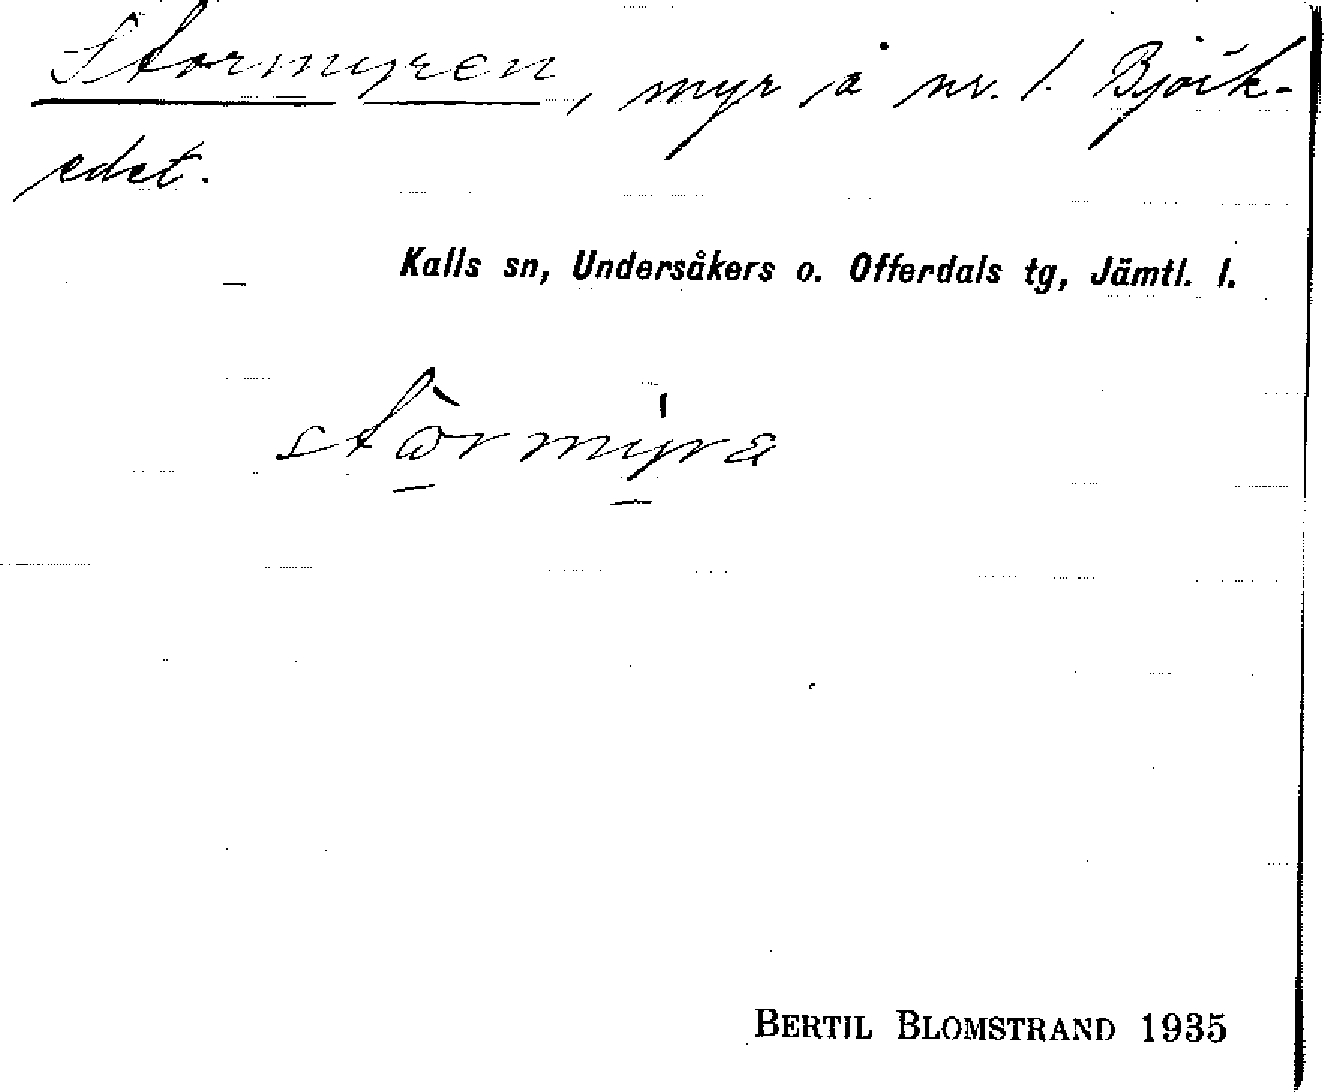 Stormyren, myr å nr. 1. Björk-
edet.
Kalls sn, Undersåkers o. Offerdals tg, Jämtl. l.
BERTIL BLOMSTRAND 1935